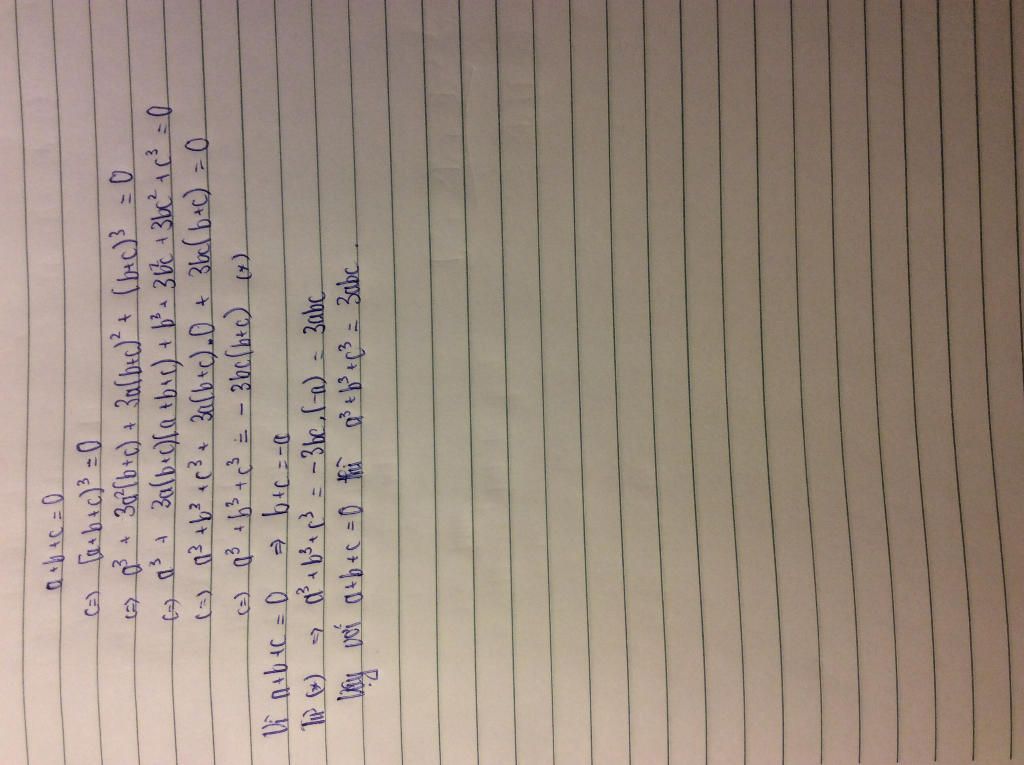 a+b+c=0
<=> (a+b+c)³=0
<=> a³ + 3a²(b+c) + 3a(b+c)² + (b+c)³ = 0
<=> a³ + 3a(b+c)(a+b+c) + b³ + 3b²c + 3bc² + c³ = 0
<=> a³ + b³ + c³ + 3a(b+c).0 + 3bc(b+c) = 0
<=> a³ + b³ + c³ = - 3bc(b+c) (*)
Vì a+b+c = 0 => b+c = -a
Từ (*) => a³ + b³ + c³ = -3bc.(-a) = 3abc
Vậy với a+b+c = 0 thì a³ + b³ + c³ = 3abc.